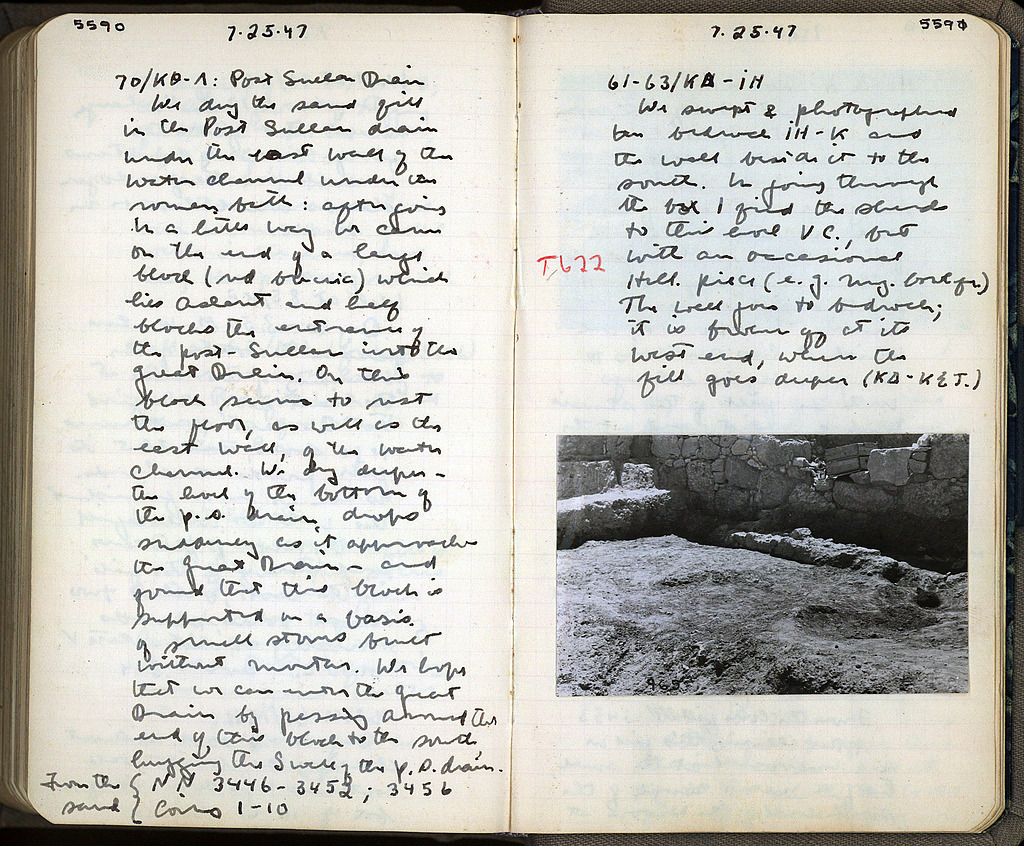 5590
7.25.47
70/KΔ-Λ: Post Sullan Drain
We dug the sand fill
in the Post Sullan drain
under the east wall of the
water channel under the
women's bath: after going
in a little way we came
on the end of a large
block (red breccia) which
lies aslant and half
blocks the entrance of
the post-Sullan into the
great Drain. On this
block seems to rest
the floor, as well as the
east wall, of the water
channel. We dug deeper -
the level of the bottom of
the p.s. drain drops
suddenly as it approaches
the great Drain - and
found that this block is
supported on a basis
of small stones built
without mortar. We hope
that we can enter the great
Drain by passing around the
end of this block to the south,
hugging the S wall of the p.s. drain.
From the sand { NN 3446-3452; 3456
Coins 1-10
7.25.47
5591
61-63/KΔ-ΙΗ
We swept & photographed
the bedrock ΙΗ-Κ and
the wall beside it to the
south. In going through
the box I find the sherds
to this level V C., but
with an occasional
Hell. piece (e.g. Meg. bowl fr.)
The wall goes to bedrock;
it is broken off at its
west end, where the
fill goes deeper (KΔ-KE T.)
T, 622